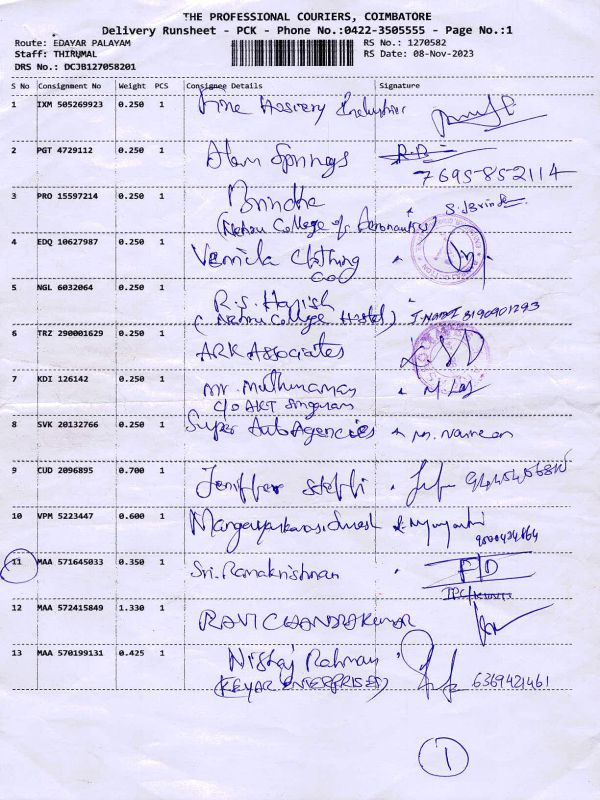 THE PROFESSIONAL COURIERS, COIMBATORE
Delivery Runsheet - PCK - Phone No.:0422-3505555 - Page No.:1
Route: EDAYAR PALAYAM RS No.: 1270582
Staff: THIRUMAL RS Date: 08-Nov-2023
DRS No.: DCJB127058201
S No Consignment No Weight PCS Consignee Details Signature
1 IXM 505269923 0.250 1 Fine Hosiery Industries
2 PGT 4729112 0.250 1 Alam Springs
7695852114
3 PRO 15597214 0.250 1 Brindha S.Brinda
(Nehru College of Aeronautics)
4 EDQ 10627987 0.250 1 Vernila Clothing
5 NGL 6032064 0.250 1 R.S. Harish
(Nehru College Hostel) 8190901293
6 TRZ 290001629 0.250 1 ARK Associates
7 KDI 126142 0.250 1 Mr. Muthuraman
C/O AKT Singaram
8 SVK 20132766 0.250 1 Super Auto Agencies
9 CUD 2096895 0.700 1 Jeniffer Steffi
10 VPM 5223447 0.600 1 Mangayarkarasi Suresh
11 MAA 571645033 0.350 1 Sri. Ramakrishnan F/D
12 MAA 572415849 1.330 1 RAVI CHANDRA Kumar
13 MAA 570199131 0.425 1 Nishaj Rahman
(KEYAR ENTERPRISES) 6369421461
1